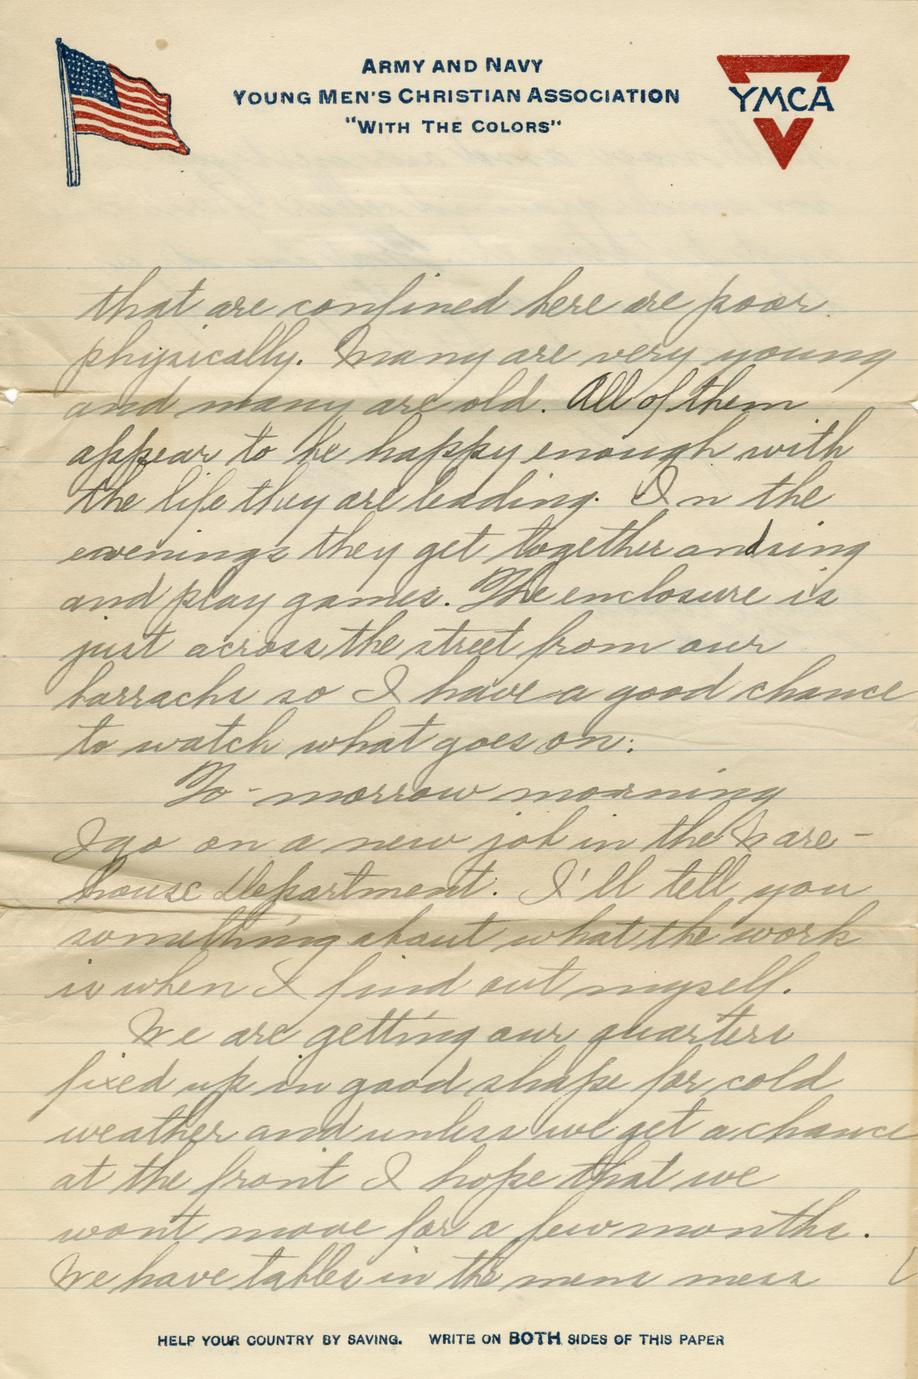 ARMY AND NAVY
YOUNG MEN'S CHRISTIAN ASSOCIATION
"WITH THE COLORS"
YMCA
that are confined here are poor
physically. Many are very young
and many are old. All of them
appear to be happy enough with
the life they are leading. In the
evenings they get together and sing
and play games. The enclosure is
just across the street from our
barracks so I have a good chance
to watch what goes on.
To-morrow morning
I go on a new job in the Ware-
house Department. I'll tell you
something about what the work
is when I find out myself.
We are getting our quarters
fixed up in good shape for cold
weather and unless we get a chance
at the front I hope that we
wont move for a few months.
We have tables in the mens mess
HELP YOUR COUNTRY BY SAVING. WRITE ON BOTH SIDES OF THIS PAPER